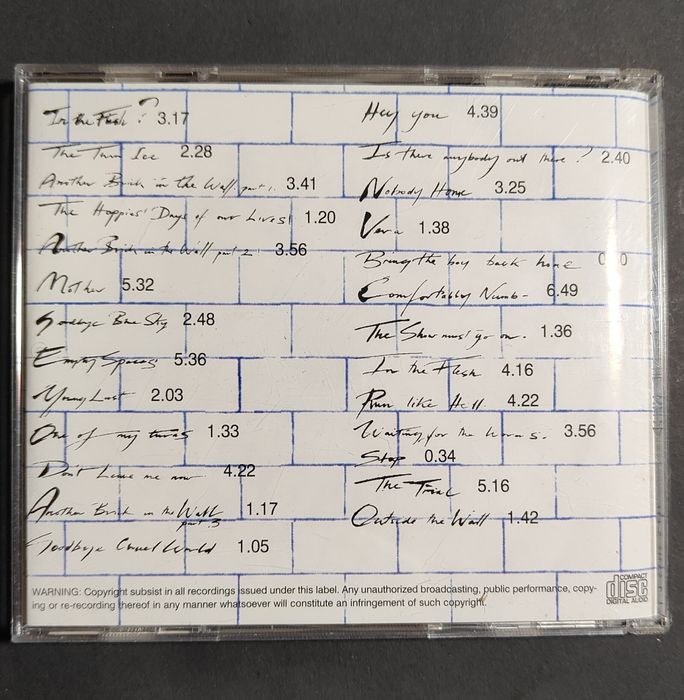 In the Flesh? 3.17
The Thin Ice 2.28
Another Brick in the Wall part 1. 3.41
The Happiest Days of our Lives 1.20
Another Brick in the Wall part 2 3.56
Mother 5.32
Goodbye Blue Sky 2.48
Empty Spaces 5.36
Young Lust 2.03
One of my turns 1.33
Don't Leave me now 4.22
Another Brick in the Wall part 3 1.17
Goodbye Cruel World 1.05
Hey you 4.39
Is there anybody out there? 2.40
Nobody Home 3.25
Vera 1.38
Bring the boy back home
Comfortably Numb 6.49
The Show must go on. 1.36
In the Flesh 4.16
Run like Hell. 4.22
Waiting for the worms. 3.56
Stop 0.34
The Trial 5.16
Outside the Wall 1.42
WARNING: Copyright subsist in all recordings issued under this label. Any unauthorized broadcasting, public performance, copy-
ing or re-recording thereof in any manner whatsoever will constitute an infringement of such copyright.
COMPACT
disc
DIGITAL AUDIO